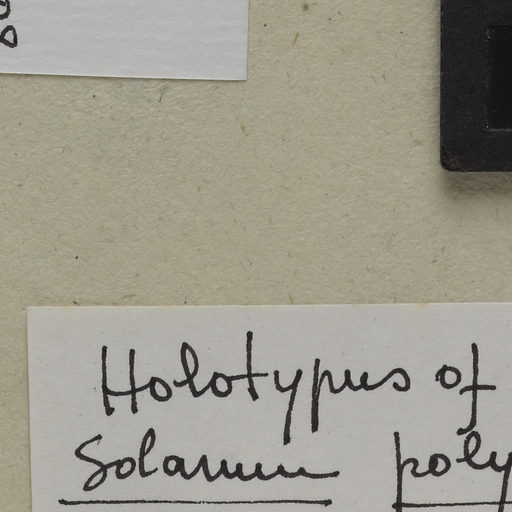 Holotypus of
Solanum poly